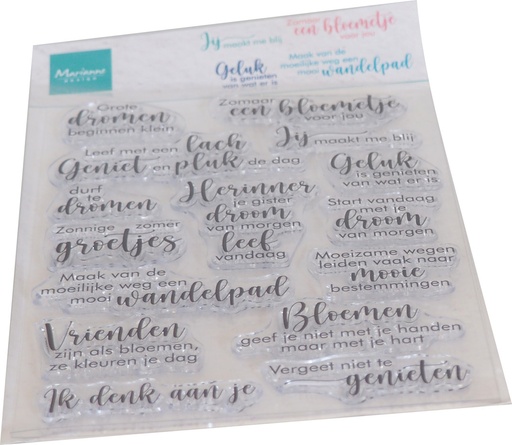 Marianne
DESIGN
Jij maakt me blij
Zomaar
een bloemetje
voor jou
Geluk
is genieten
van wat er is
Maak van de
moeilijke weg een
mooi wandelpad
Grote
dromen
beginnen klein
Zomaar
een bloemetje
voor jou
Leef met een lach
Geniet en pluk de dag
Jij maakt me blij
Geluk
is genieten
van wat er is
durf
te
dromen
Herinner
je gister
droom
van morgen
leef
vandaag
Start vandaag
met je
droom
van morgen
Zonnige zomer
groetjes
Moeizame wegen
leiden vaak naar
mooie
bestemmingen
Maak van de
moeilijke weg een
mooi wandelpad
Bloemen
geef je niet met je handen
maar met je hart
Vrienden
zijn als bloemen,
ze kleuren je dag
Vergeet niet te
genieten
Ik denk áán je